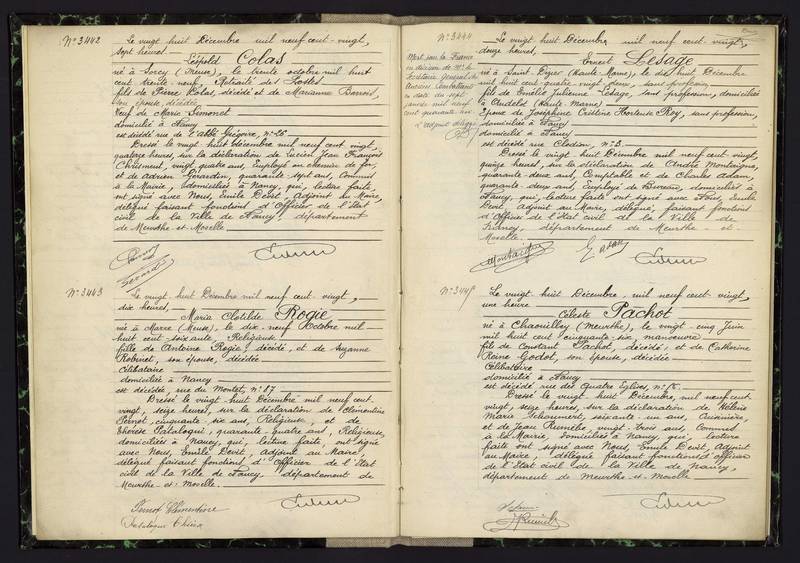 N° 3442
Le vingt huit Décembre mil neuf cent vingt,
sept heures
Léopold Colas
né à Sorcy (Meuse), le trente octobre mil huit
cent trente neuf, Retraité des Postes
fils de Pierre Colas, décédé et de Marianne
son épouse, décédée
Veuf de Marie Simonet
domicilié à Nancy
est décédé rue de l'abbé Grégoire, n° 26
Dressé le vingt huit décembre mil neuf cent vingt,
quatorze heures, sur la déclaration de Lucien Jean François
vingt quatre ans, Employé au chemin de fer,
et de Adrien Gérardin, quarante sept ans, Commis
à la Mairie, domiciliés à Nancy, qui, lecture faite,
ont signé avec Nous, Emile Devit, Adjoint au Maire,
délégué faisant fonctions d'Officier de l'Etat
civil de la Ville de Nancy, département
de Meurthe et Moselle
N° 3443
Le vingt huit Décembre mil neuf cent vingt,
dix heures,
Maria Clotilde Rogie
né à Marre (Meuse), le dix neuf Octobre mil
huit cent soixante Religieuse
fille de Antoine Rogie, décédé, et de Suzanne
Robinet, son épouse, décédée
Célibataire
domiciliée à Nancy
est décédée, rue du Montet, n° 87
Dressé le vingt huit Décembre mil neuf cent
vingt, seize heures, sur la déclaration de Clémentine
Pernot, cinquante six ans, Religieuse, et de
Thérèse quarante quatre ans, Religieuse,
domiciliées à Nancy, qui, lecture faite, ont signé
avec Nous, Emile Devit, adjoint au Maire,
délégué faisant fonctions d'Officier de l'Etat
civil de la Ville de Nancy, département de
Meurthe et Moselle.
Pernot Clémentine
N° 3444
Mort pour la France
Le vingt huit Décembre mil neuf cent vingt,
douze heures,
Ernest Lesage
né à Saint Dizier (Haute Marne), le dix huit Décembre
mil huit cent quatre vingt
fils de Julienne Lesage, sans profession, domiciliée
à Andelot (Haute Marne)
Epoux de Joséphine Cristine Hortense Roy, sans profession,
domiciliée à Nancy
domicilié à Nancy
est décédé rue Clodion, n° 3
Dressé le vingt huit Décembre mil neuf cent vingt,
quinze heures, sur la déclaration de André Montaigne,
quarante deux ans, Comptable et de Charles Adam,
quarante deux ans, Employé de Bureau, domiciliés à
Nancy, qui, lecture faite ont signé avec Nous, Emile
Devit Adjoint au Maire, délégué, faisant fonctions
d'Officier de l'Etat civil de la Ville de
Nancy, département de Meurthe et
Moselle
N° 3445
Le vingt huit Décembre mil neuf cent vingt,
une heure
Céleste Pachot
né à Chaouilley (Meurthe), le vingt cinq Juin
mil huit cent cinquante six, manoeuvre
fils de Constant Pachot, décédé, et de Catherine
Reine Godot, son épouse, décédée
Célibataire
domicilié à Nancy
est décédé rue des Quatre Eglises, n° 18
Dressé le vingt huit Décembre, mil neuf cent
vingt, seize heures, sur la déclaration de Hélène
Marie soixante un ans, Cuisinière,
et de Jean vingt trois ans, Commis
à la Mairie, domiciliés à Nancy, qui, lecture
faite ont signé avec Nous, Emile Devit, Adjoint
au Maire, délégué faisant fonctions d'officier
de l'Etat civil de la Ville de Nancy,
département de Meurthe et Moselle